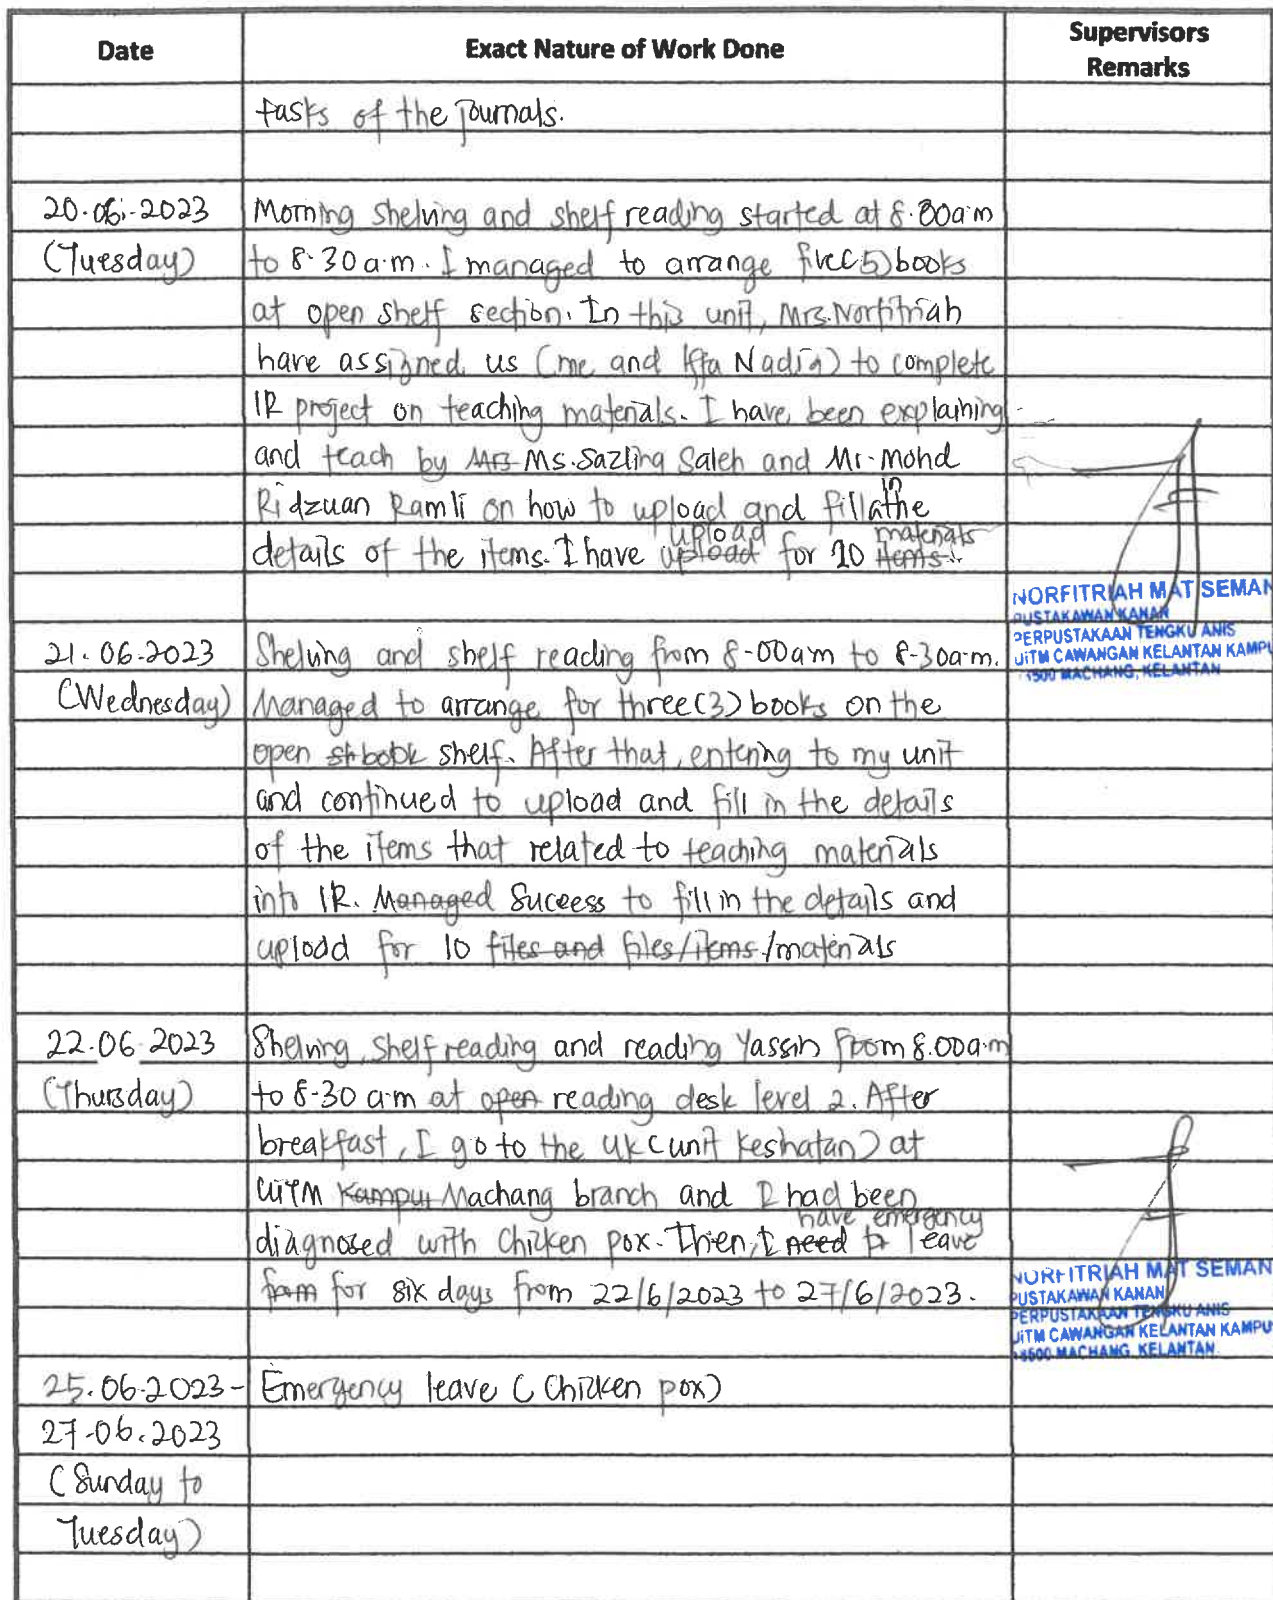 Date Exact Nature of Work Done Supervisors Remarks
tasks of the journals.
20.06.2023 Morning shelving and shelf reading started at 8.00a.m
(Tuesday) to 8.30 a.m. I managed to arrange five(5) books
at open shelf section. In this unit, Mrs. Norfitriah
have assigned us (me and Iffa Nadia) to complete
IR project on teaching materials. I have been explaining
and teach by Mrs Ms. Sazlina Saleh and Mr. Mohd
Ridzuan Ramli on how to upload and fill in the
details of the items. I have upload upload for 20 items materials
NORFITRIAH MAT SEMAN
PUSTAKAWAN KANAN
PERPUSTAKAAN TENGKU ANIS
UiTM CAWANGAN KELANTAN KAMPU
500 MACHANG, KELANTAN
21.06.2023 Shelving and shelf reading from 8-00am to 8-30a.m.
(Wednesday) Managed to arrange for three(3) books on the
open sh book shelf. After that, entering to my unit
and continued to upload and fill in the details
of the items that related to teaching materials
into IR. Managed Success to fill in the details and
upload for 10 files and files/items/materials
22.06.2023 Shelving, shelf reading and reading Yassin from 8.00a.m
(Thursday) to 8-30 a.m at open reading desk level 2. After
breakfast, I go to the UK (unit Keshatan) at
UiTM Kampus Machang branch and I had been
diagnosed with Chicken pox. Then, I need to have emergency leave
from for six days from 22/6/2023 to 27/6/2023.
NORFITRIAH MAT SEMAN
PUSTAKAWAN KANAN
PERPUSTAKAAN TENGKU ANIS
UiTM CAWANGAN KELANTAN KAMPU
18500 MACHANG, KELANTAN
25.06.2023- Emergency leave (Chicken pox)
27.06.2023
(Sunday to
Tuesday)